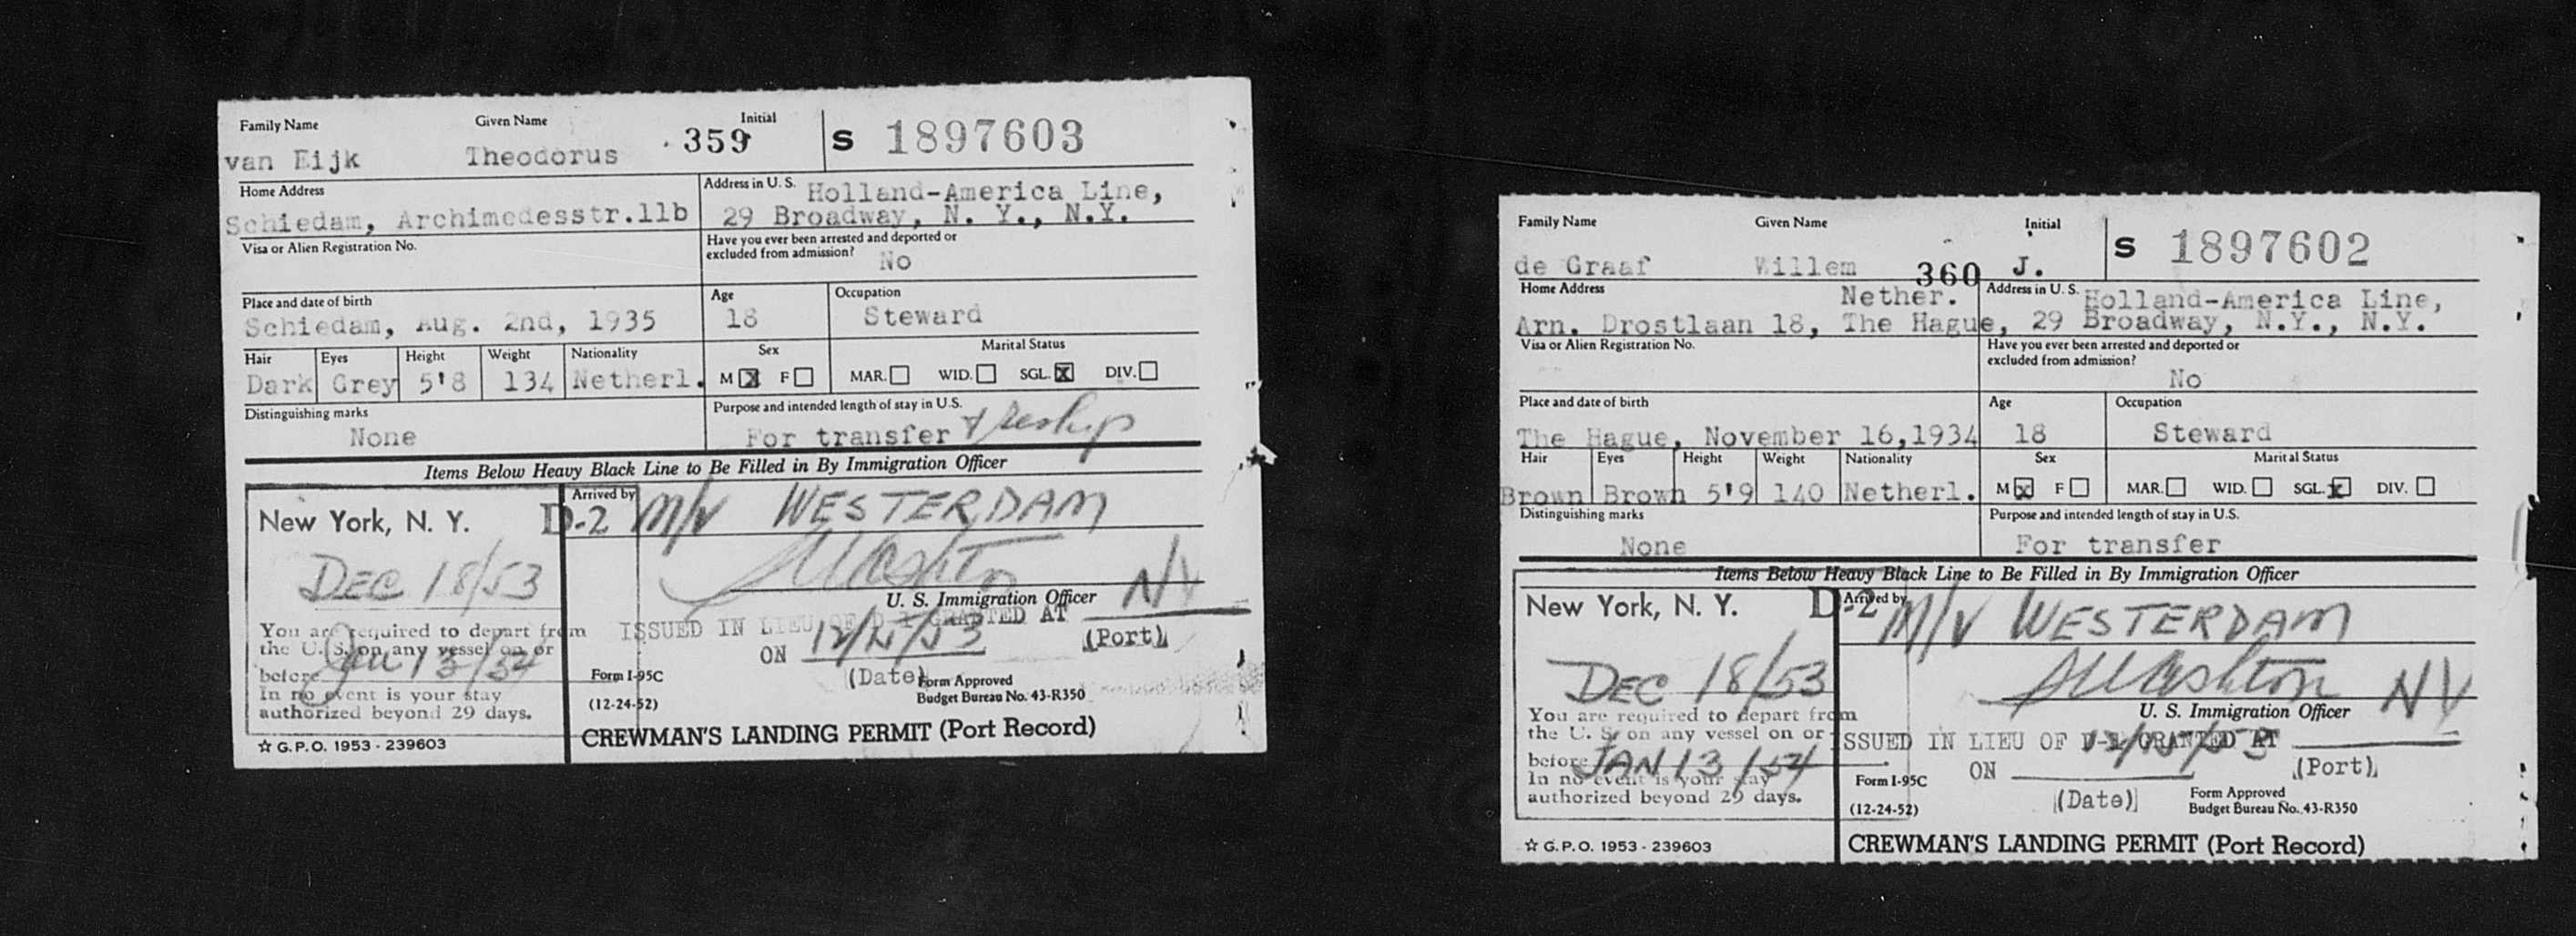 Family Name Given Name Initial
359 S 1897603
van Eijk Theodorus
Home Address Address in U. S. Holland-America Line,
Schiedam, Archimedesstr.11b 29 Broadway, N. Y., N.Y.
Visa or Alien Registration No. Have you ever been arrested and deported or
excluded from admission? No
Place and date of birth Age Occupation
Schiedam, Aug. 2nd, 1935 18 Steward
Hair Eyes Height Weight Nationality Sex Marital Status
Dark Grey 5'8 134 Netherl. M X F MAR. WID. SGL. X DIV.
Distinguishing marks Purpose and intended length of stay in U.S.
None For transfer
Items Below Heavy Black Line to Be Filled in By Immigration Officer
New York, N. Y. D-2 Arrived by M/V WESTERDAM
DEC 18/53
U. S. Immigration Officer NY
You are required to depart from ISSUED IN LIEU OF D-1 GRANTED AT (Port)
the U. S. on any vessel on or ON 12/15/53
before Jan 13/54 Form I-95C (Date) Form Approved
In no event is your stay Budget Bureau No. 43-R350
authorized beyond 29 days. (12-24-52)
☆ G.P.O. 1953 - 239603 CREWMAN'S LANDING PERMIT (Port Record)
Family Name Given Name Initial
S 1897602
de Graaf Willem 360 J.
Home Address Nether. Address in U. S. Holland-America Line,
Arn. Drostlaan 18, The Hague, 29 Broadway, N.Y., N.Y.
Visa or Alien Registration No. Have you ever been arrested and deported or
excluded from admission?
No
Place and date of birth Age Occupation
The Hague, November 16,1934 18 Steward
Hair Eyes Height Weight Nationality Sex Marital Status
Brown Brown 5'9 140 Netherl. M X F MAR. WID. SGL. X DIV.
Distinguishing marks Purpose and intended length of stay in U.S.
None For transfer
Items Below Heavy Black Line to Be Filled in By Immigration Officer
New York, N. Y. D-2 Arrived by M/V WESTERDAM
DEC 18/53 Ashton NY
You are required to depart from U. S. Immigration Officer
the U. S. on any vessel on or ISSUED IN LIEU OF D-1 GRANTED AT
12/15/53
before JAN 13/54 ON (Port)
In no event is your stay Form I-95C
authorized beyond 29 days. (12-24-52) (Date) Form Approved
Budget Bureau No. 43-R350
☆ G.P.O. 1953 - 239603 CREWMAN'S LANDING PERMIT (Port Record)